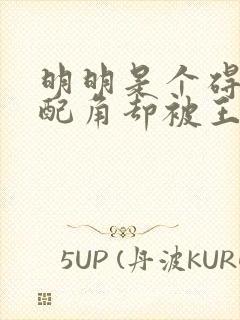 明明是个碍
配角却被王
5UP (丹波KUR